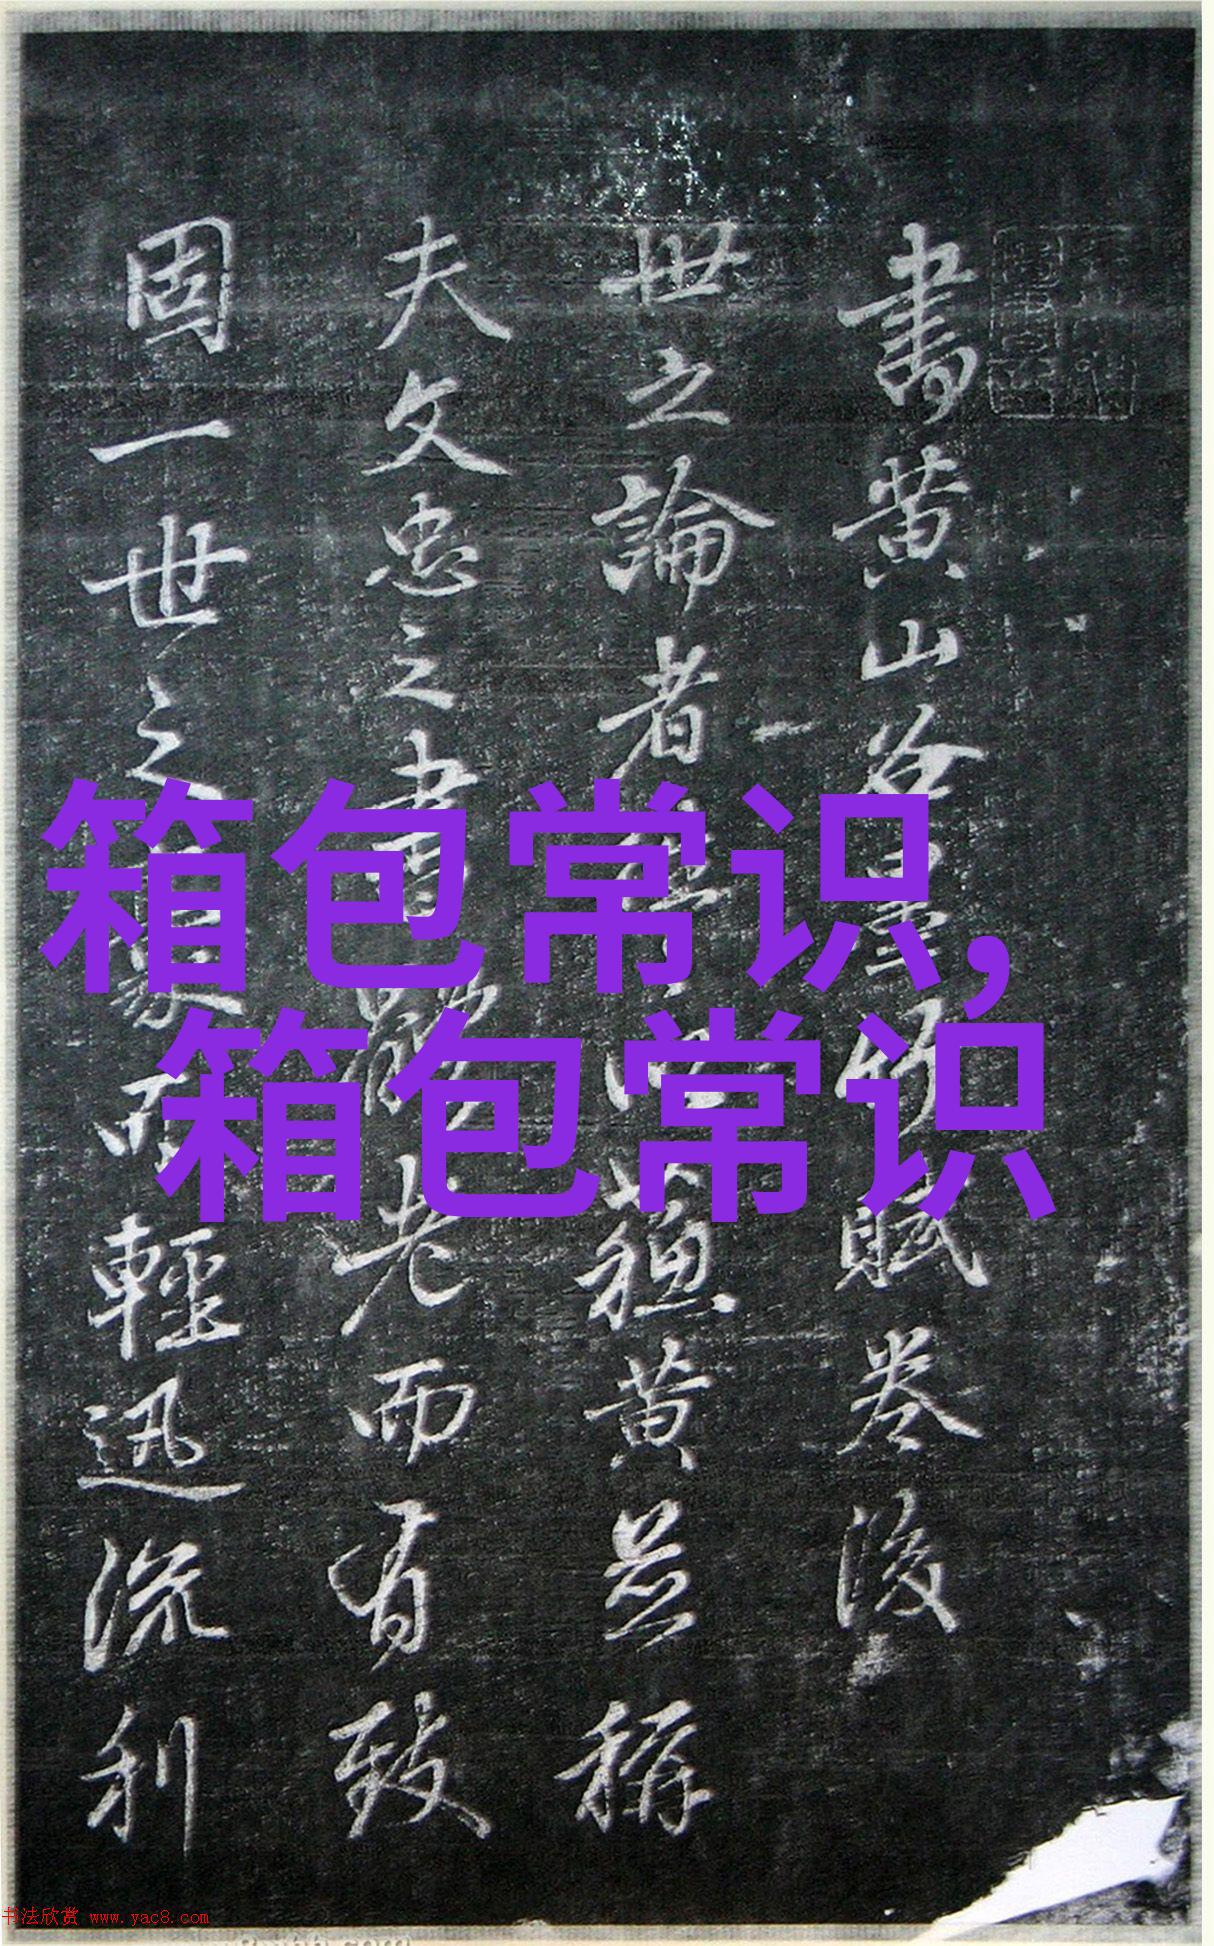 書黄山谷墨竹賦卷後
世之論者以蘓黄並稱
夫文忠之書體老而有致
固一世之豪而輕迅流利
箱包常识,
箱包常识
书法欣赏 www.yac8.com